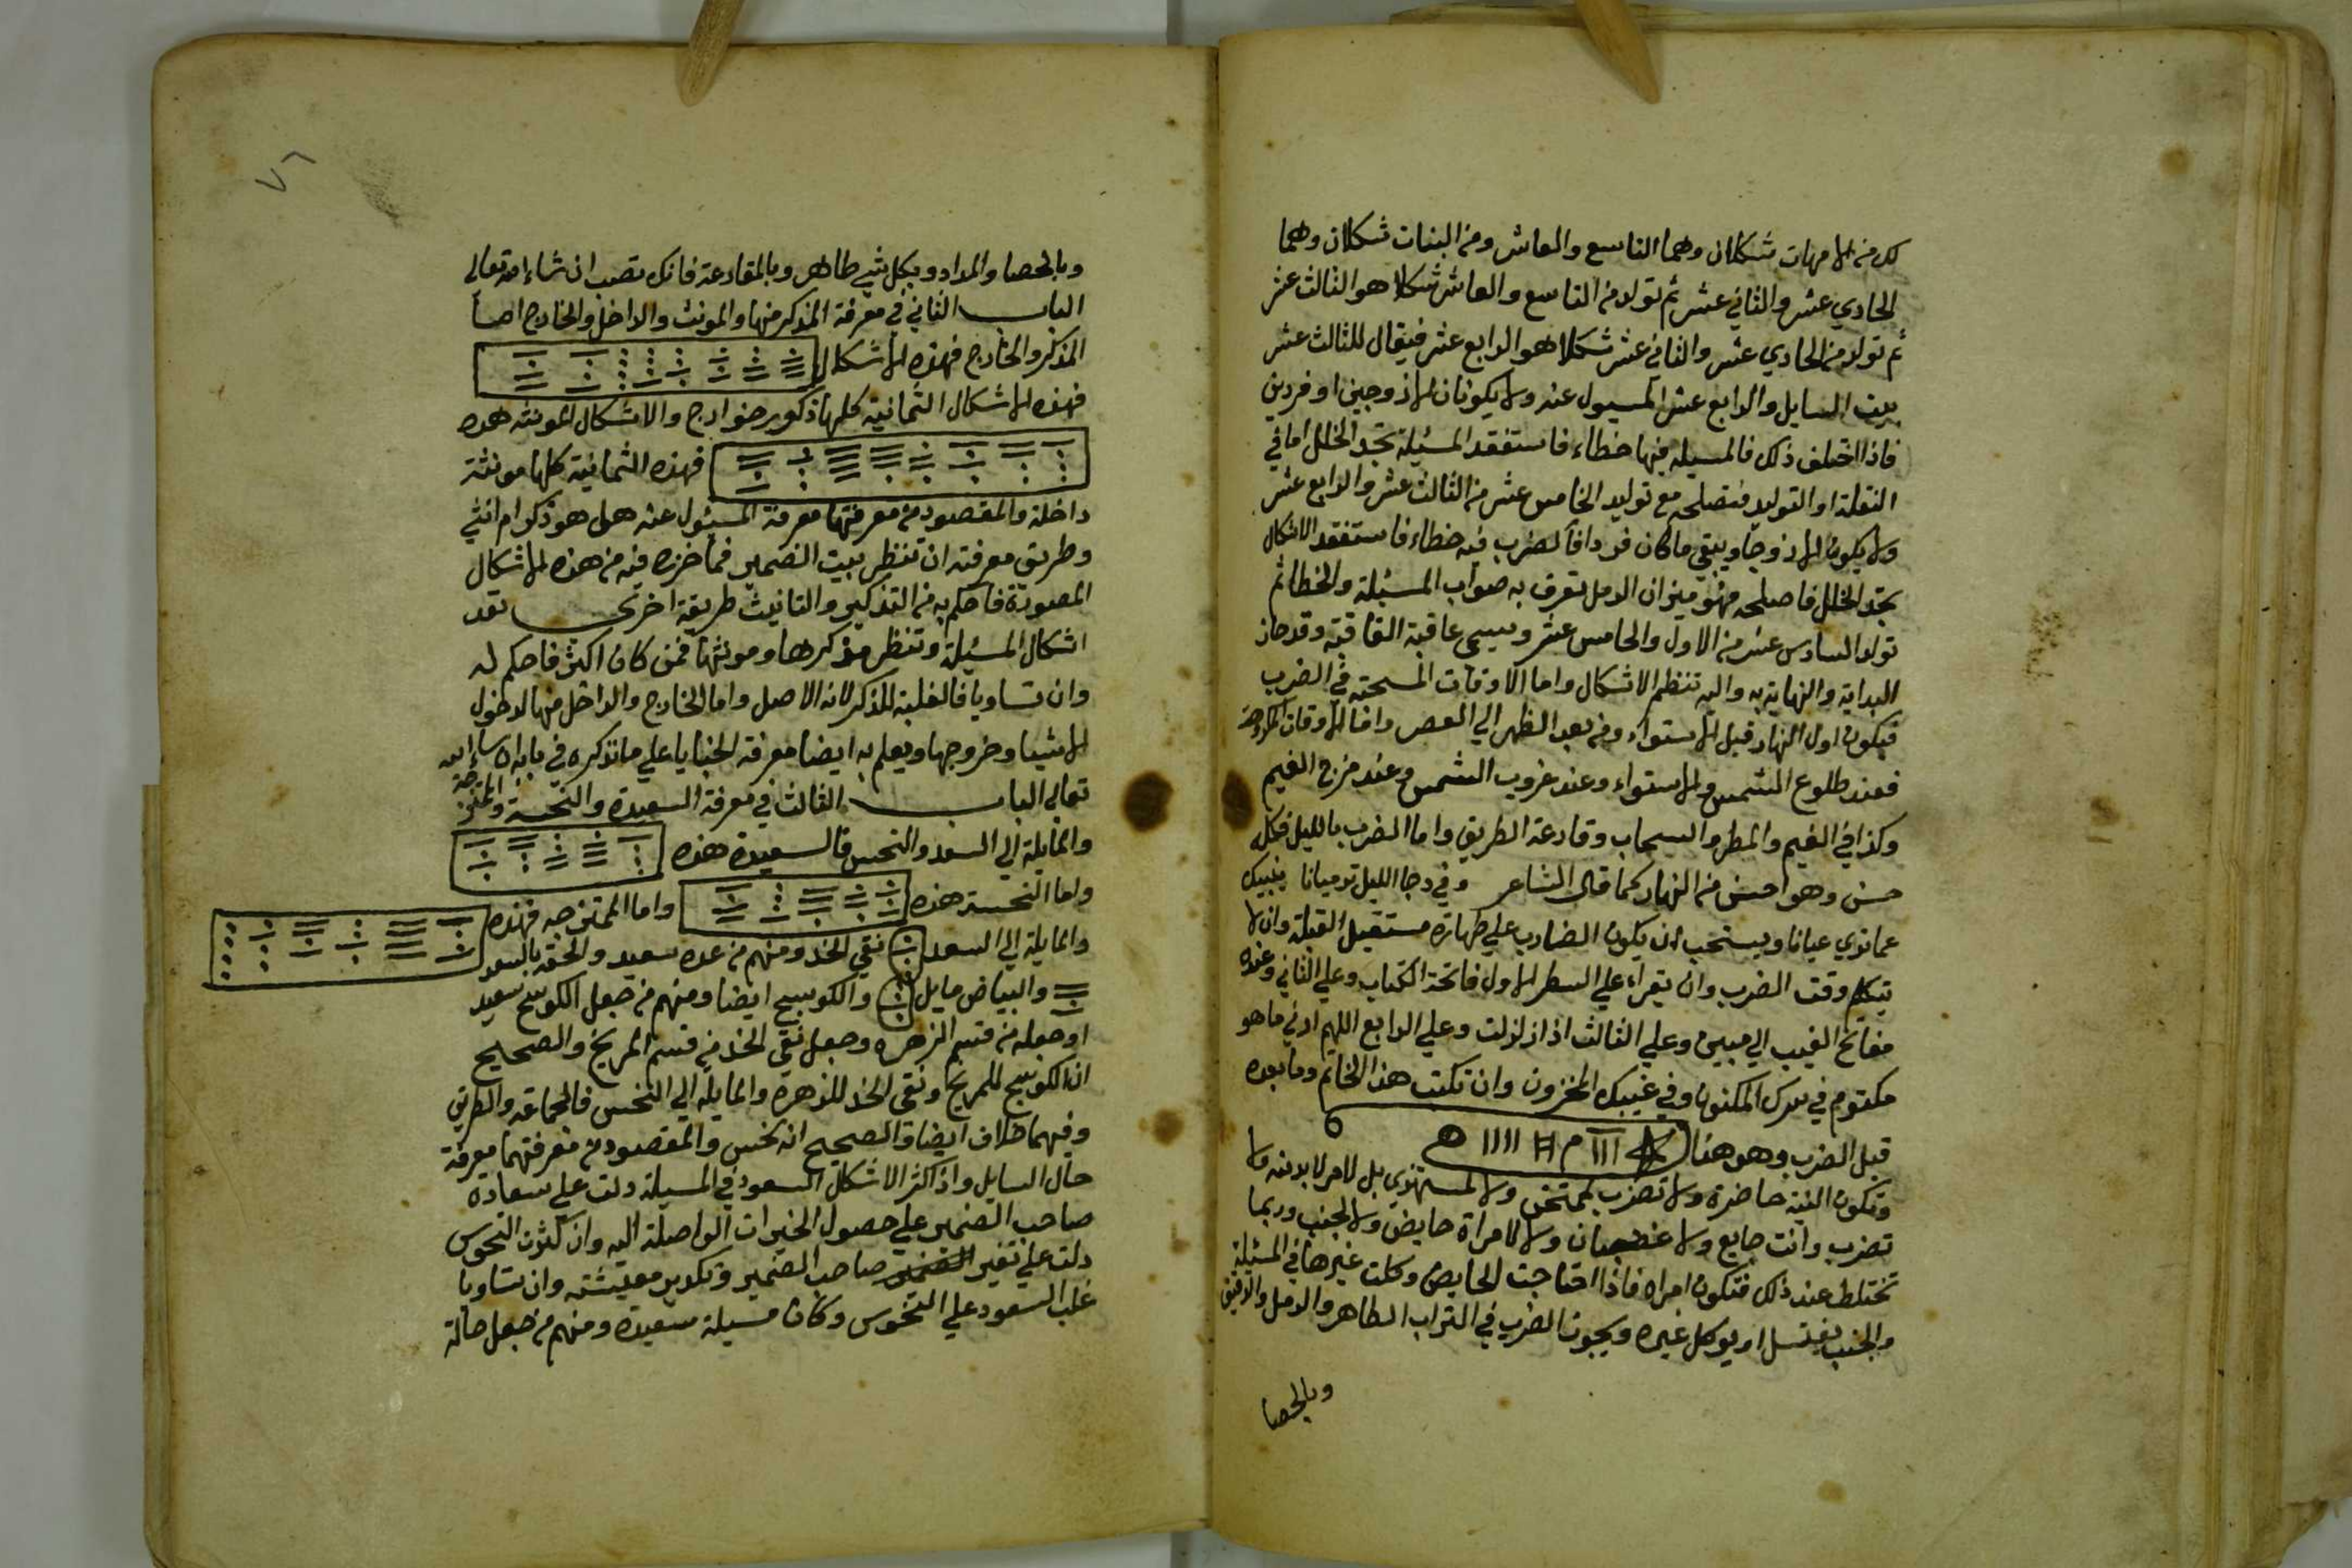 لك من الامهات شكلان وهما التاسع والعاشر ومن البنات شكلان وهما
الحادي عشر والثاني عشر ثم تولد من التاسع والعاشر شكلا هو الثالث عشر
ثم تولد من الحادي عشر والثاني عشر شكلا هو الرابع عشر فيقال للثالث عشر
بيت السايل والرابع عشر المسيول عنه ولا يكونان الا زوجين او فردين
فاذا اختلف ذلك فالمسيله فيها خطاء فاستفقد المسئيلة تجد الخلل اما في
النقلة او التوليد فتصلحه مع توليد الخامس عشر من الثالث عشر والرابع عشر
ولا يكون الا زوجا ويبقى ما كان فردا فالضرب فيه خطاء فاستفقد الاشكال
تجد الخلل فاصلحه فهو ميزان الرمل تعرف به صواب المسئيلة والخطا ثم
تولد السادس عشر من الاول والخامس عشر ويسمى عاقبة العاقبة وقد حاز
البداية والنهاية به واليه تنظم الاشكال واما الاوقات المستحبه في الضرب
فيكون اول النهار قبل الاستواء ومن بعد الظهر الي العصر واما الاوقات المكروهة
فعند طلوع الشمس والاستواء وعند غروب الشمس وعند مزج الغيم
وكذا في الغيم والمطر والسحاب وقارعة الطريق واما الضرب بالليل فكله
حسن وهو احسن من النهار كما قال الشاعر وفي دجا الليل ترميانا ينبيك
عما تري عيانا ويستحب ان يكون الضارب علي طهارة مستقبل القبلة وان لا
يتكلم وقت الضرب وان يقراء علي السطر الاول فاتحة الكتاب وعلي الثاني وعنده
مفاتح الغيب الي مبين وعلي الثالث اذا زلزلت وعلي الرابع اللهم ارني ما هو
مكتوم في سرك المكنون وفي غيبك المخزون وان تكتب هذا الخاتم وما بعده
قبل الضرب وهو هذا ١١١ م ١١١١ ه
وتكون النية حاضرة ولا تضرب لممتحن ولا لمستهزي بل لامر لا بد منه ولا
تضرب وانت جايع ولا غضبان ولا لامراة حايض ولا لجنب وربما
تختلط عند ذلك فتكون امراه فاذا احتاجت الحايض وكلت غيرها في المسئيلة
والجنب يغتسل او يوكل غيره ويجوز الضرب في التراب الطاهر والرمل والدقيق
وبالحصا
٧٦
وبالحصا والمداد وبكل شي طاهر وبالمقارعة فانك تصب ان شاء الله تعالى
الباب الثاني في معرفة المذكر منها والمونث والداخل والخارج اما
المذكر والخارج فهذه الاشكال
فهذه الاشكال الثمانية كلها ذكور خوارج والاشكال المونثه هذه
فهذه الثمانية كلها مونثة
داخلة والمقصود من معرفتها معرفة المسئول عنه هل هو ذكر ام انثي
وطريق معرفته ان تنظر بيت الضمير فما خرج فيه من هذه الاشكال
المصورة فاحكم به من التذكير والتانيث طريقة اخري تعد
اشكال المسئيلة وتنظر مذكرها ومونثها فمن كان اكثر فاحكم له
وان تساويا فالغلبة للمذكر لانه الاصل واما الخارج والداخل منها لدخول
الاشيا وخروجها ويعلم به ايضا معرفة الخبايا علي ما نذكره في بابه ان شاء الله
تعالي الباب الثالث في معرفة السعيدة والنحسة والممتزجة
والمايلة الي السعد والنحس فالسعيدة هذه
واما النحسة هذه واما الممتزجه فهذه
والمايلة الي السعد نقي الخد ومنهم من عده سعيد والحقه بالسعد
والبياض مايل والكوسج ايضا ومنهم من جعل الكوسج سعيد
او جعله من قسم الزهره وجعل نقي الخد من قسم المريخ والصحيح
ان الكوسج للمريخ ونقي الخد للزهرة والمايلة الي النحس فالجماعة والطريق
وفيهما خلاف ايضا والصحيح انه نحس والمقصود من معرفتهما معرفة
حال السايل واذ اكثر الاشكال السعود في المسيلة دلت علي سعادة
صاحب الضمير علي حصول الخيرات الواصلة اليه وان كثرت النحوس
دلت علي تغير صاحب الضمير وتكدير معيشته وان تساويا
غلب السعود علي النحوس وكان مسيلة سعيدة ومنهم من جعل حالة